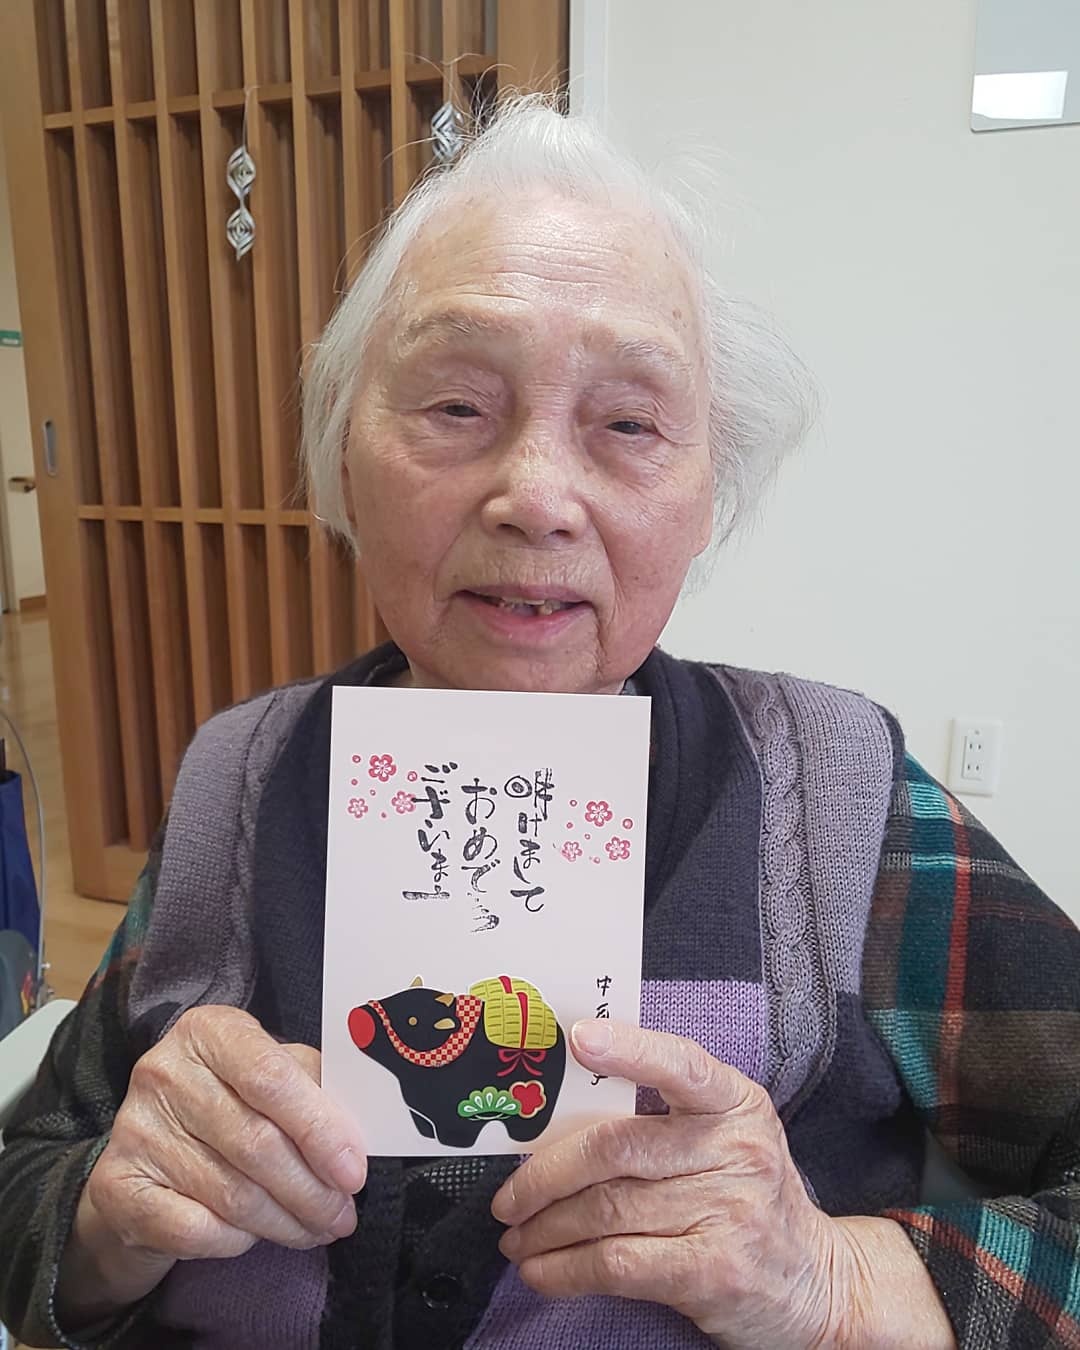 明けまして
おめでとう
ございます
中